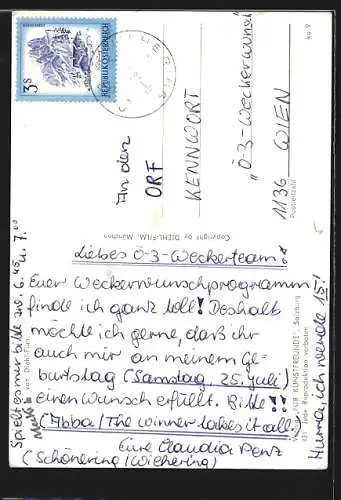 3 S
REPUBLIK ÖSTERREICH
An den
ORF
KENNWORT
"Ö-3-Weckerwunsch"
1136 WIEN
Postleitzahl
Copyright by DIEHL-FILM, München
Liebes Ö-3-Weckerteam!
Euer Weckerwunschprogramm
finde ich ganz toll! Deshalb
möchte ich gerne, daß ihr
auch mir an meinem Ge-
burtstag (Samstag, 25. Juli)
einen Wunsch erfüllt. Bitte!!!
(Abba/The winner takes it all)
Eure Claudia Penz
(Schönering/Wilhering)
Spielt es mir bitte zw. 6.45
u. 7.00
Hurra, ich werde 15!
Verlag "FÜR KUNSTFREUNDE", Salzburg
jede Reproduktion verboten